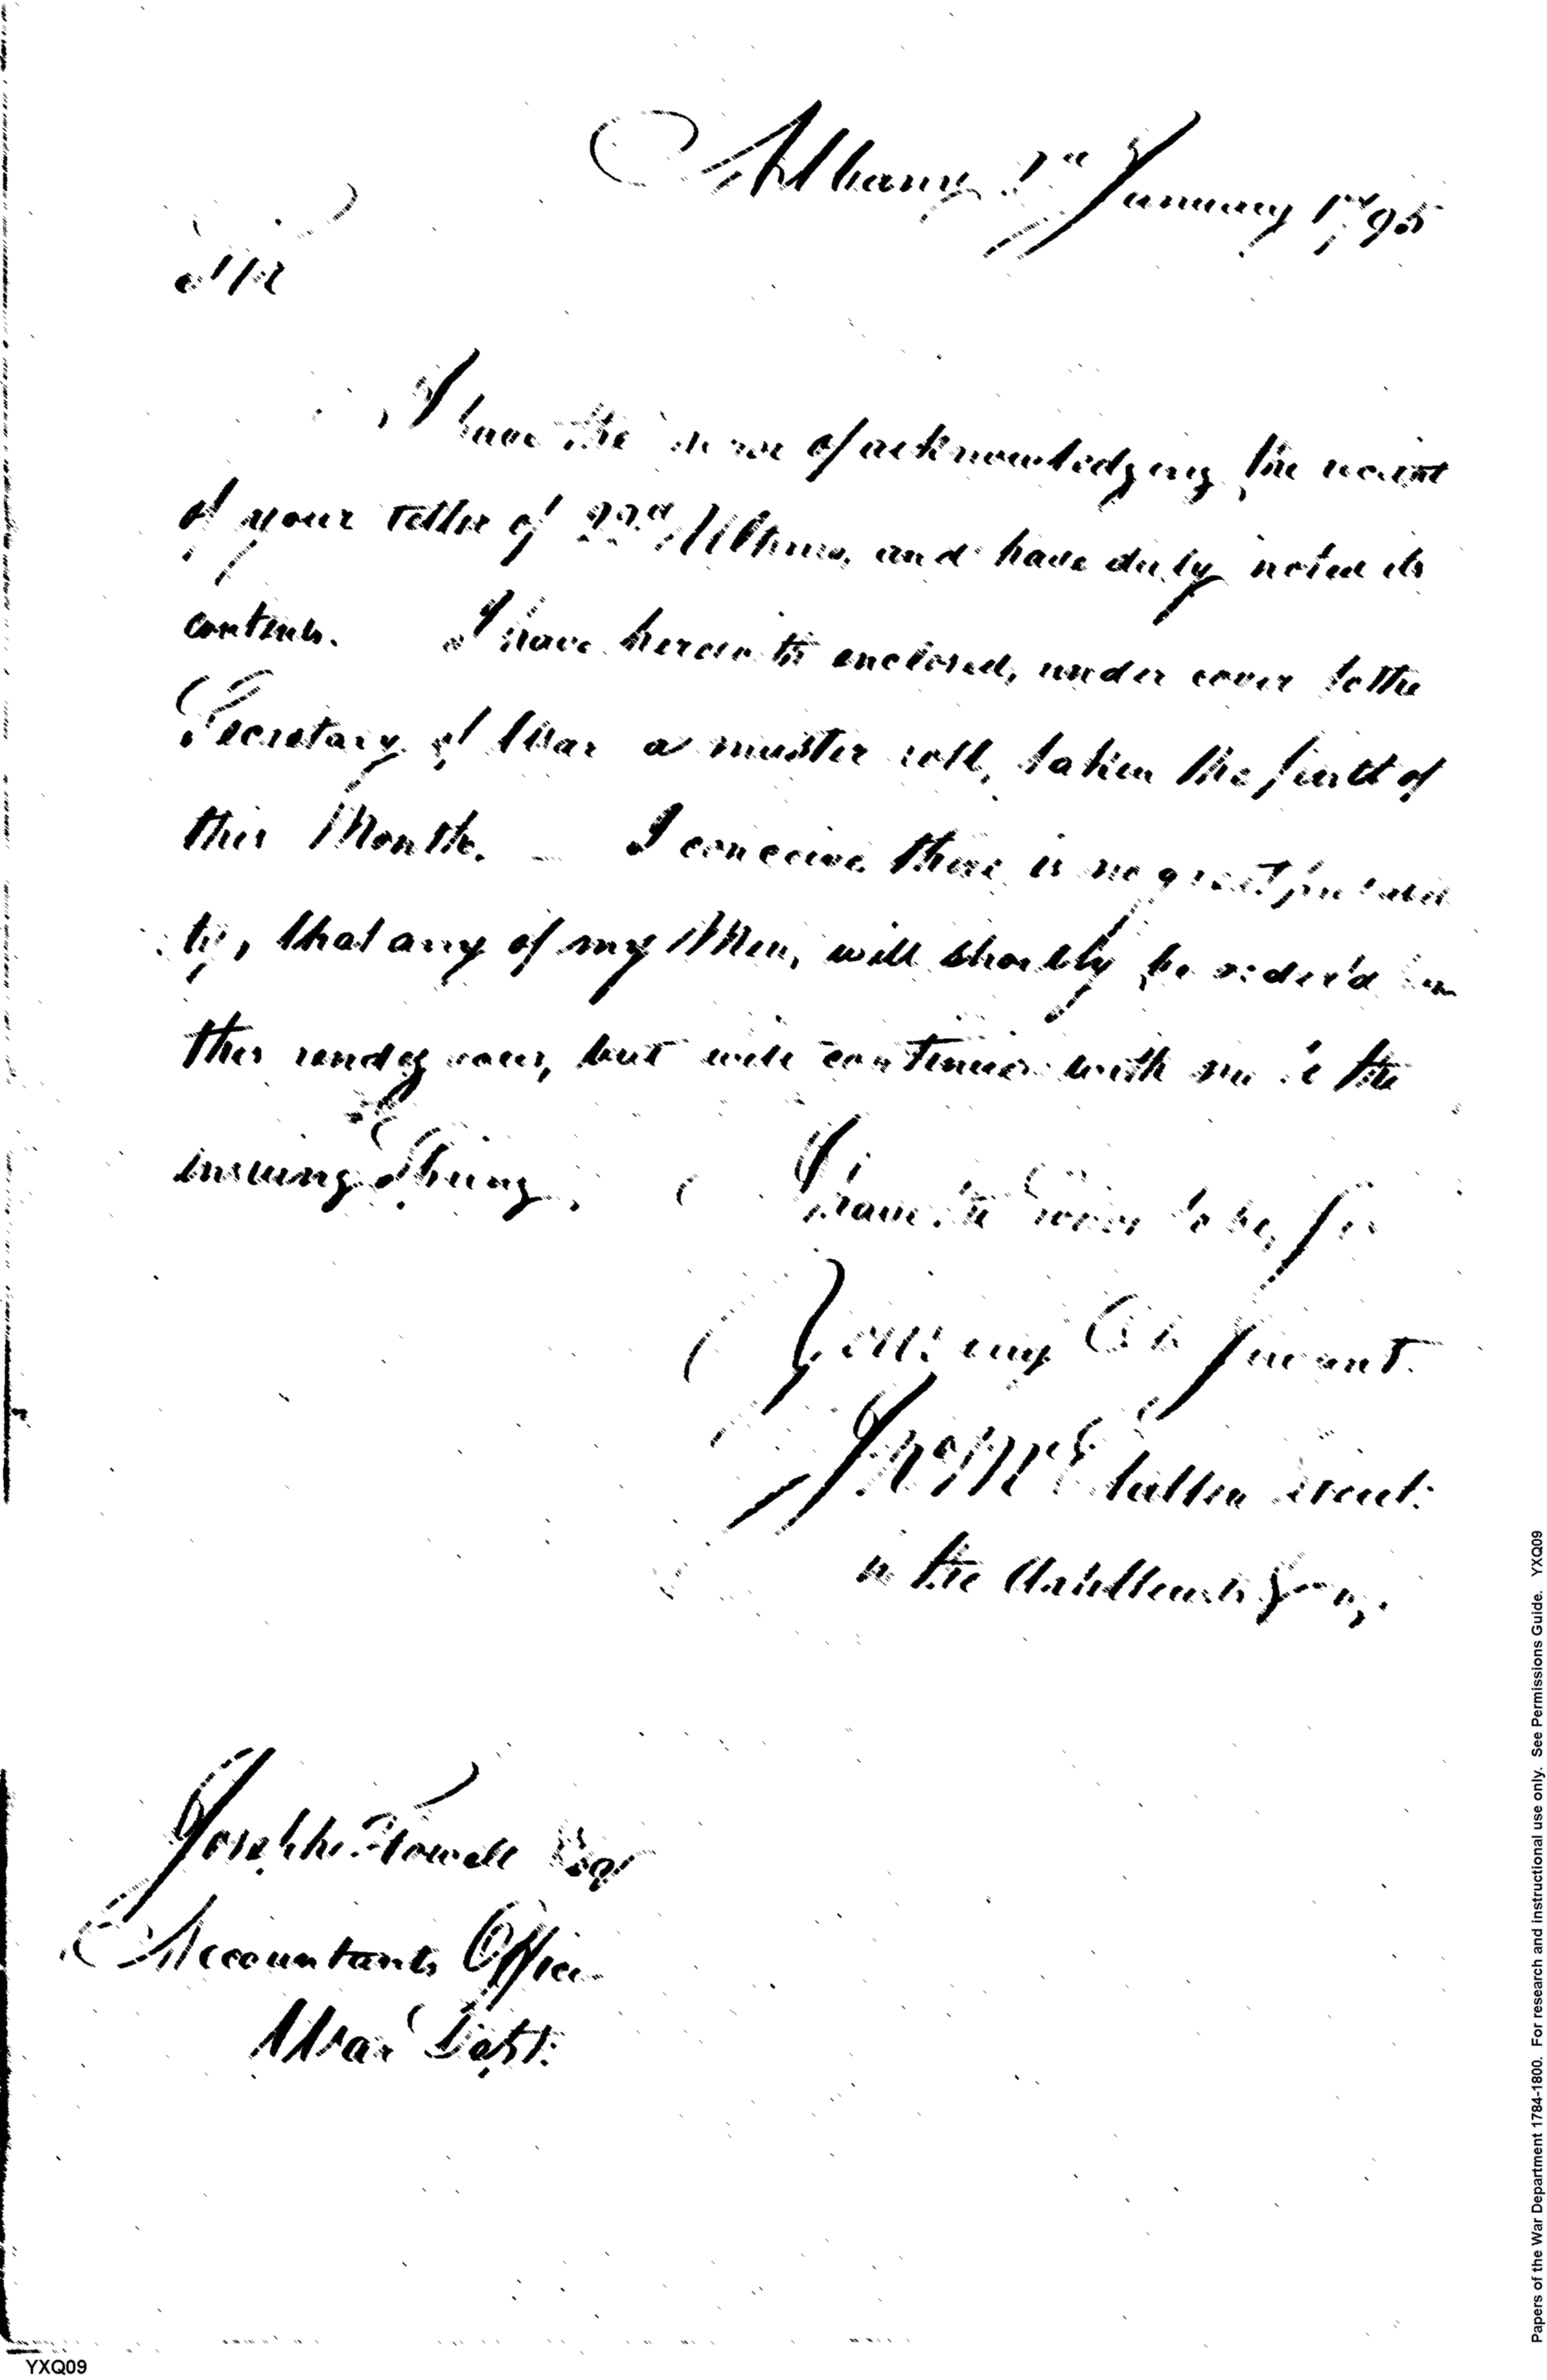 Albany 2d January 1795
Sir
I have the honor of acknowledging the receipt
of your letter of 22d Ultimo, and have duly noted its
contents. I have herewith enclosed, under cover to the
Secretary of War a muster roll, taken the first of
this Month. – I conceive there is no great probabili
ty, that any of my Men, will shortly be order'd from
this rendezvous, but will continue with me 'till the
insuing Spring.
I have the honor to be, Sir
Your Ob Servant.
Jno McClallen Lieut:
in the Artillerists &
Joseph Howell Esqr
Accountants Office
War Dept:
YXQ09
Papers of the War Department 1784-1800. For research and instructional use only. See Permissions Guide. YXQ09